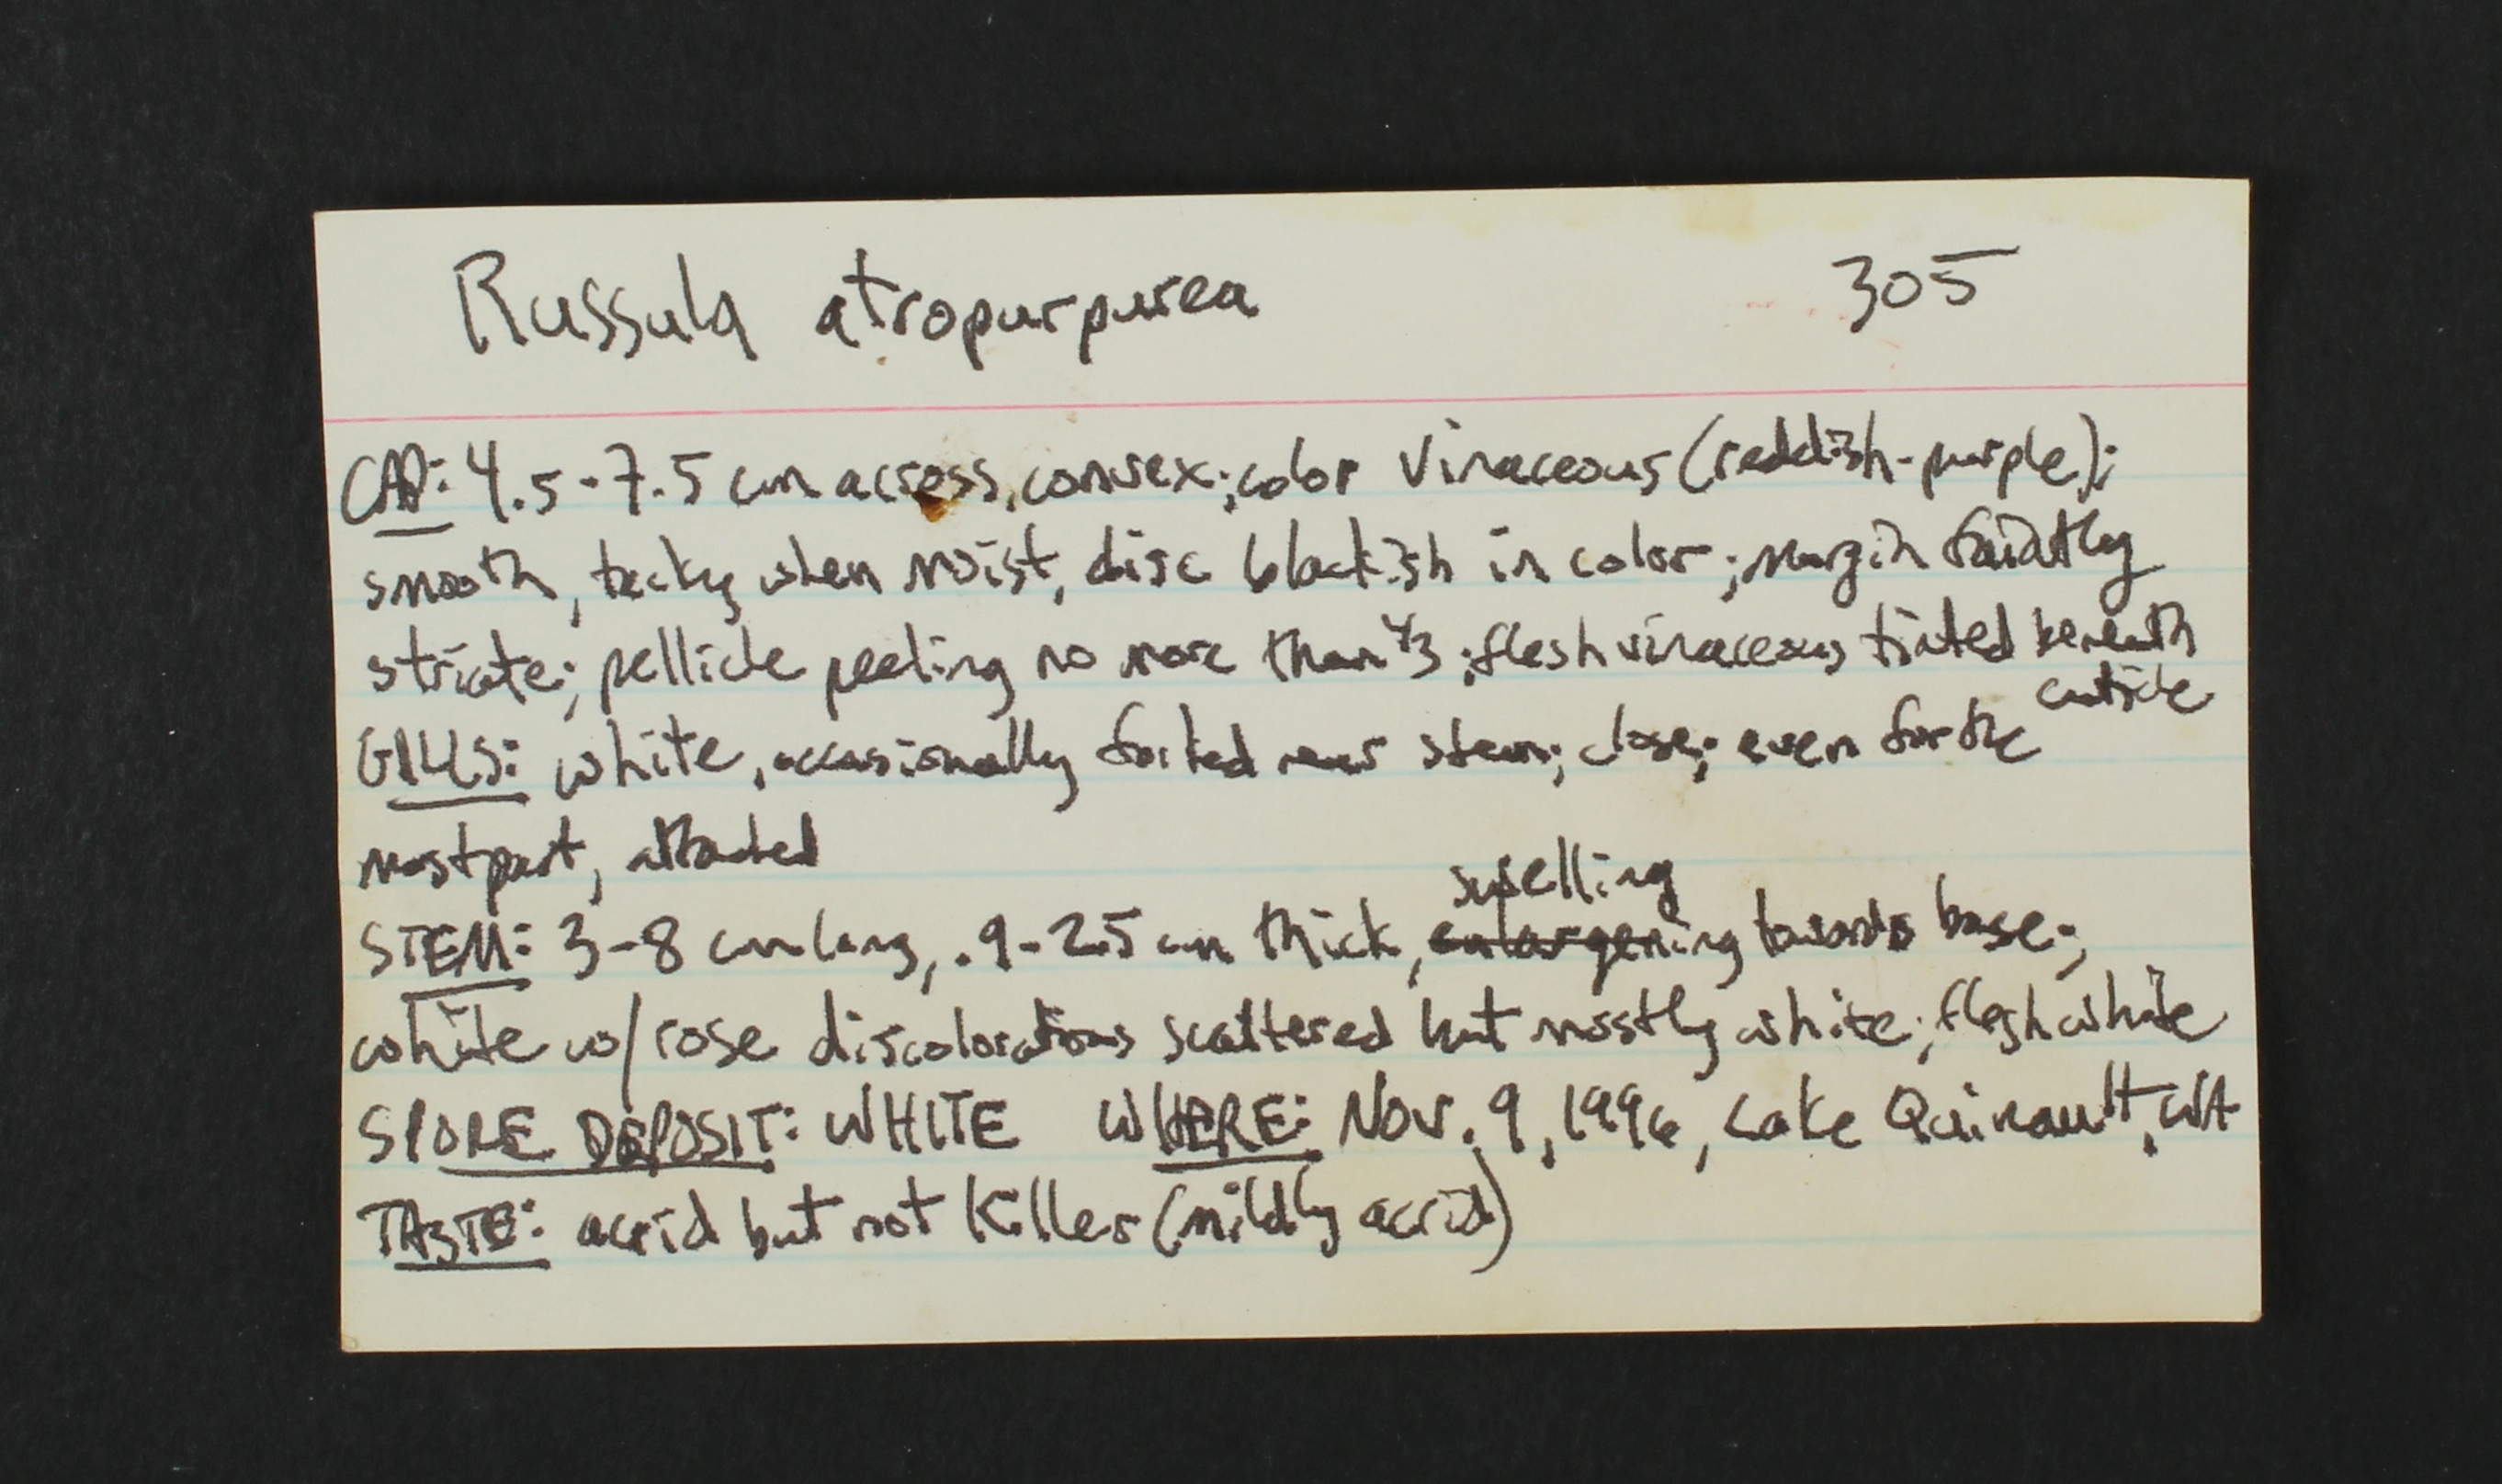 Russula atropurpurea 305
CAP: 4.5-7.5 cm across, convex; color vinaceous (reddish-purple);
smooth, tacky when moist, disc blackish in color; margin faintly
striate; pellicle peeling no more than 1/3; flesh vinaceous tinted beneath
cuticle
GILLS: white, occasionally forked near stem; close; even for the
most part, attached
swelling
STEM: 3-8 cm long, .9-2.5 cm thick, enlargening towards base;
white w/ rose discolorations scattered but mostly white; flesh white
SPORE DEPOSIT: WHITE WHERE: Nov. 9, 1996, Lake Quinault, WA
TASTE: acrid but not killer (mildly acrid)